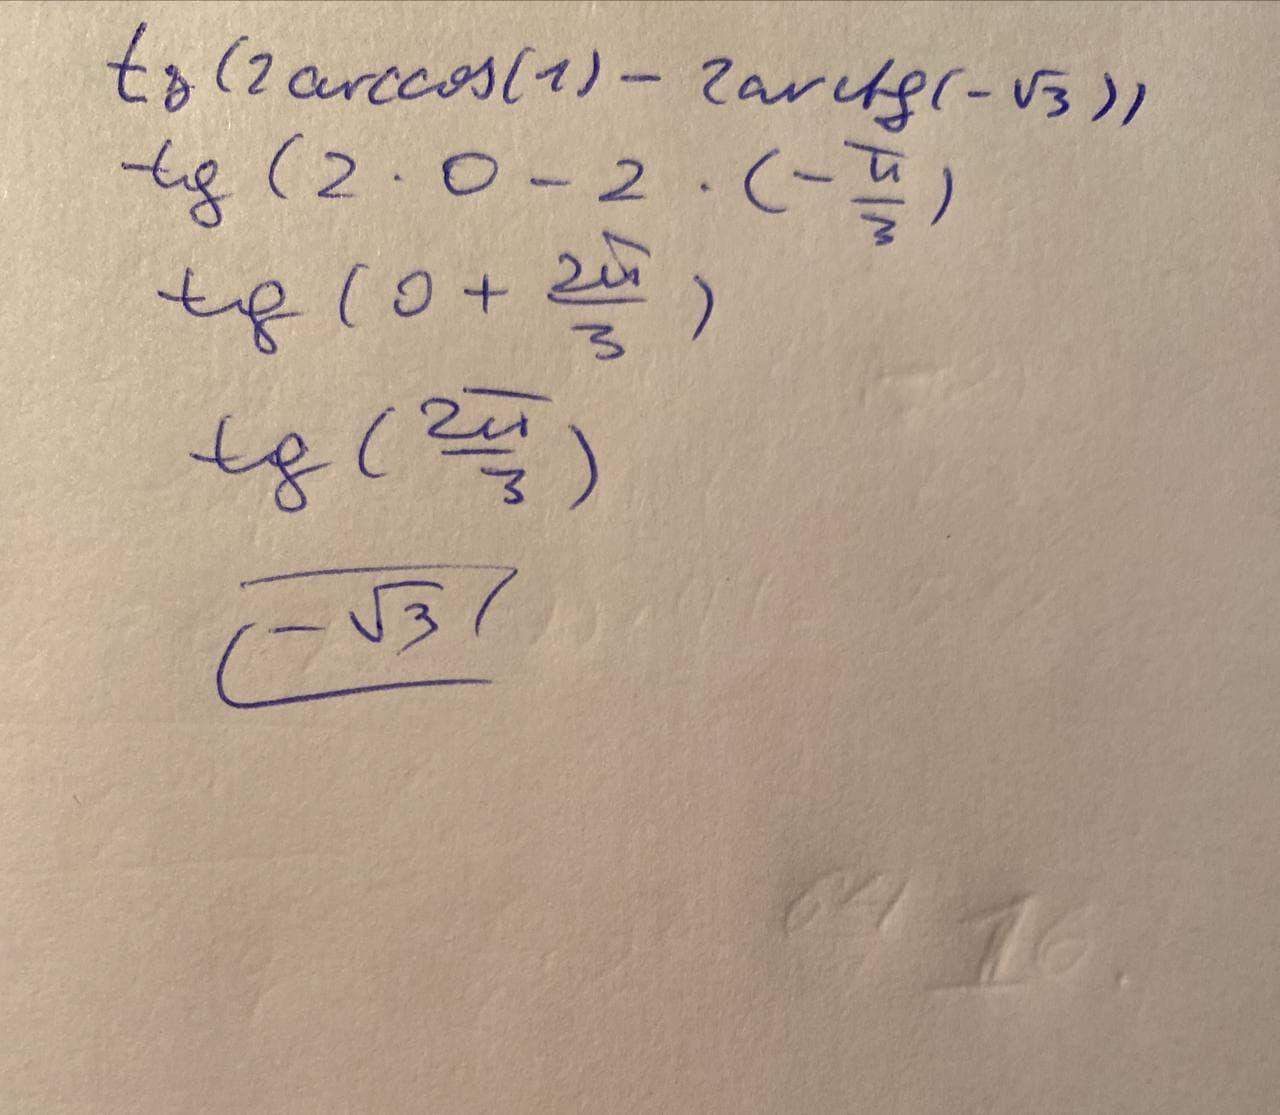 tg (2 arccos(1) - 2 arctg(-√3))
tg (2 · 0 - 2 · (-π/3)
tg (0 + 2π/3)
tg (2π/3)
-√3
16.